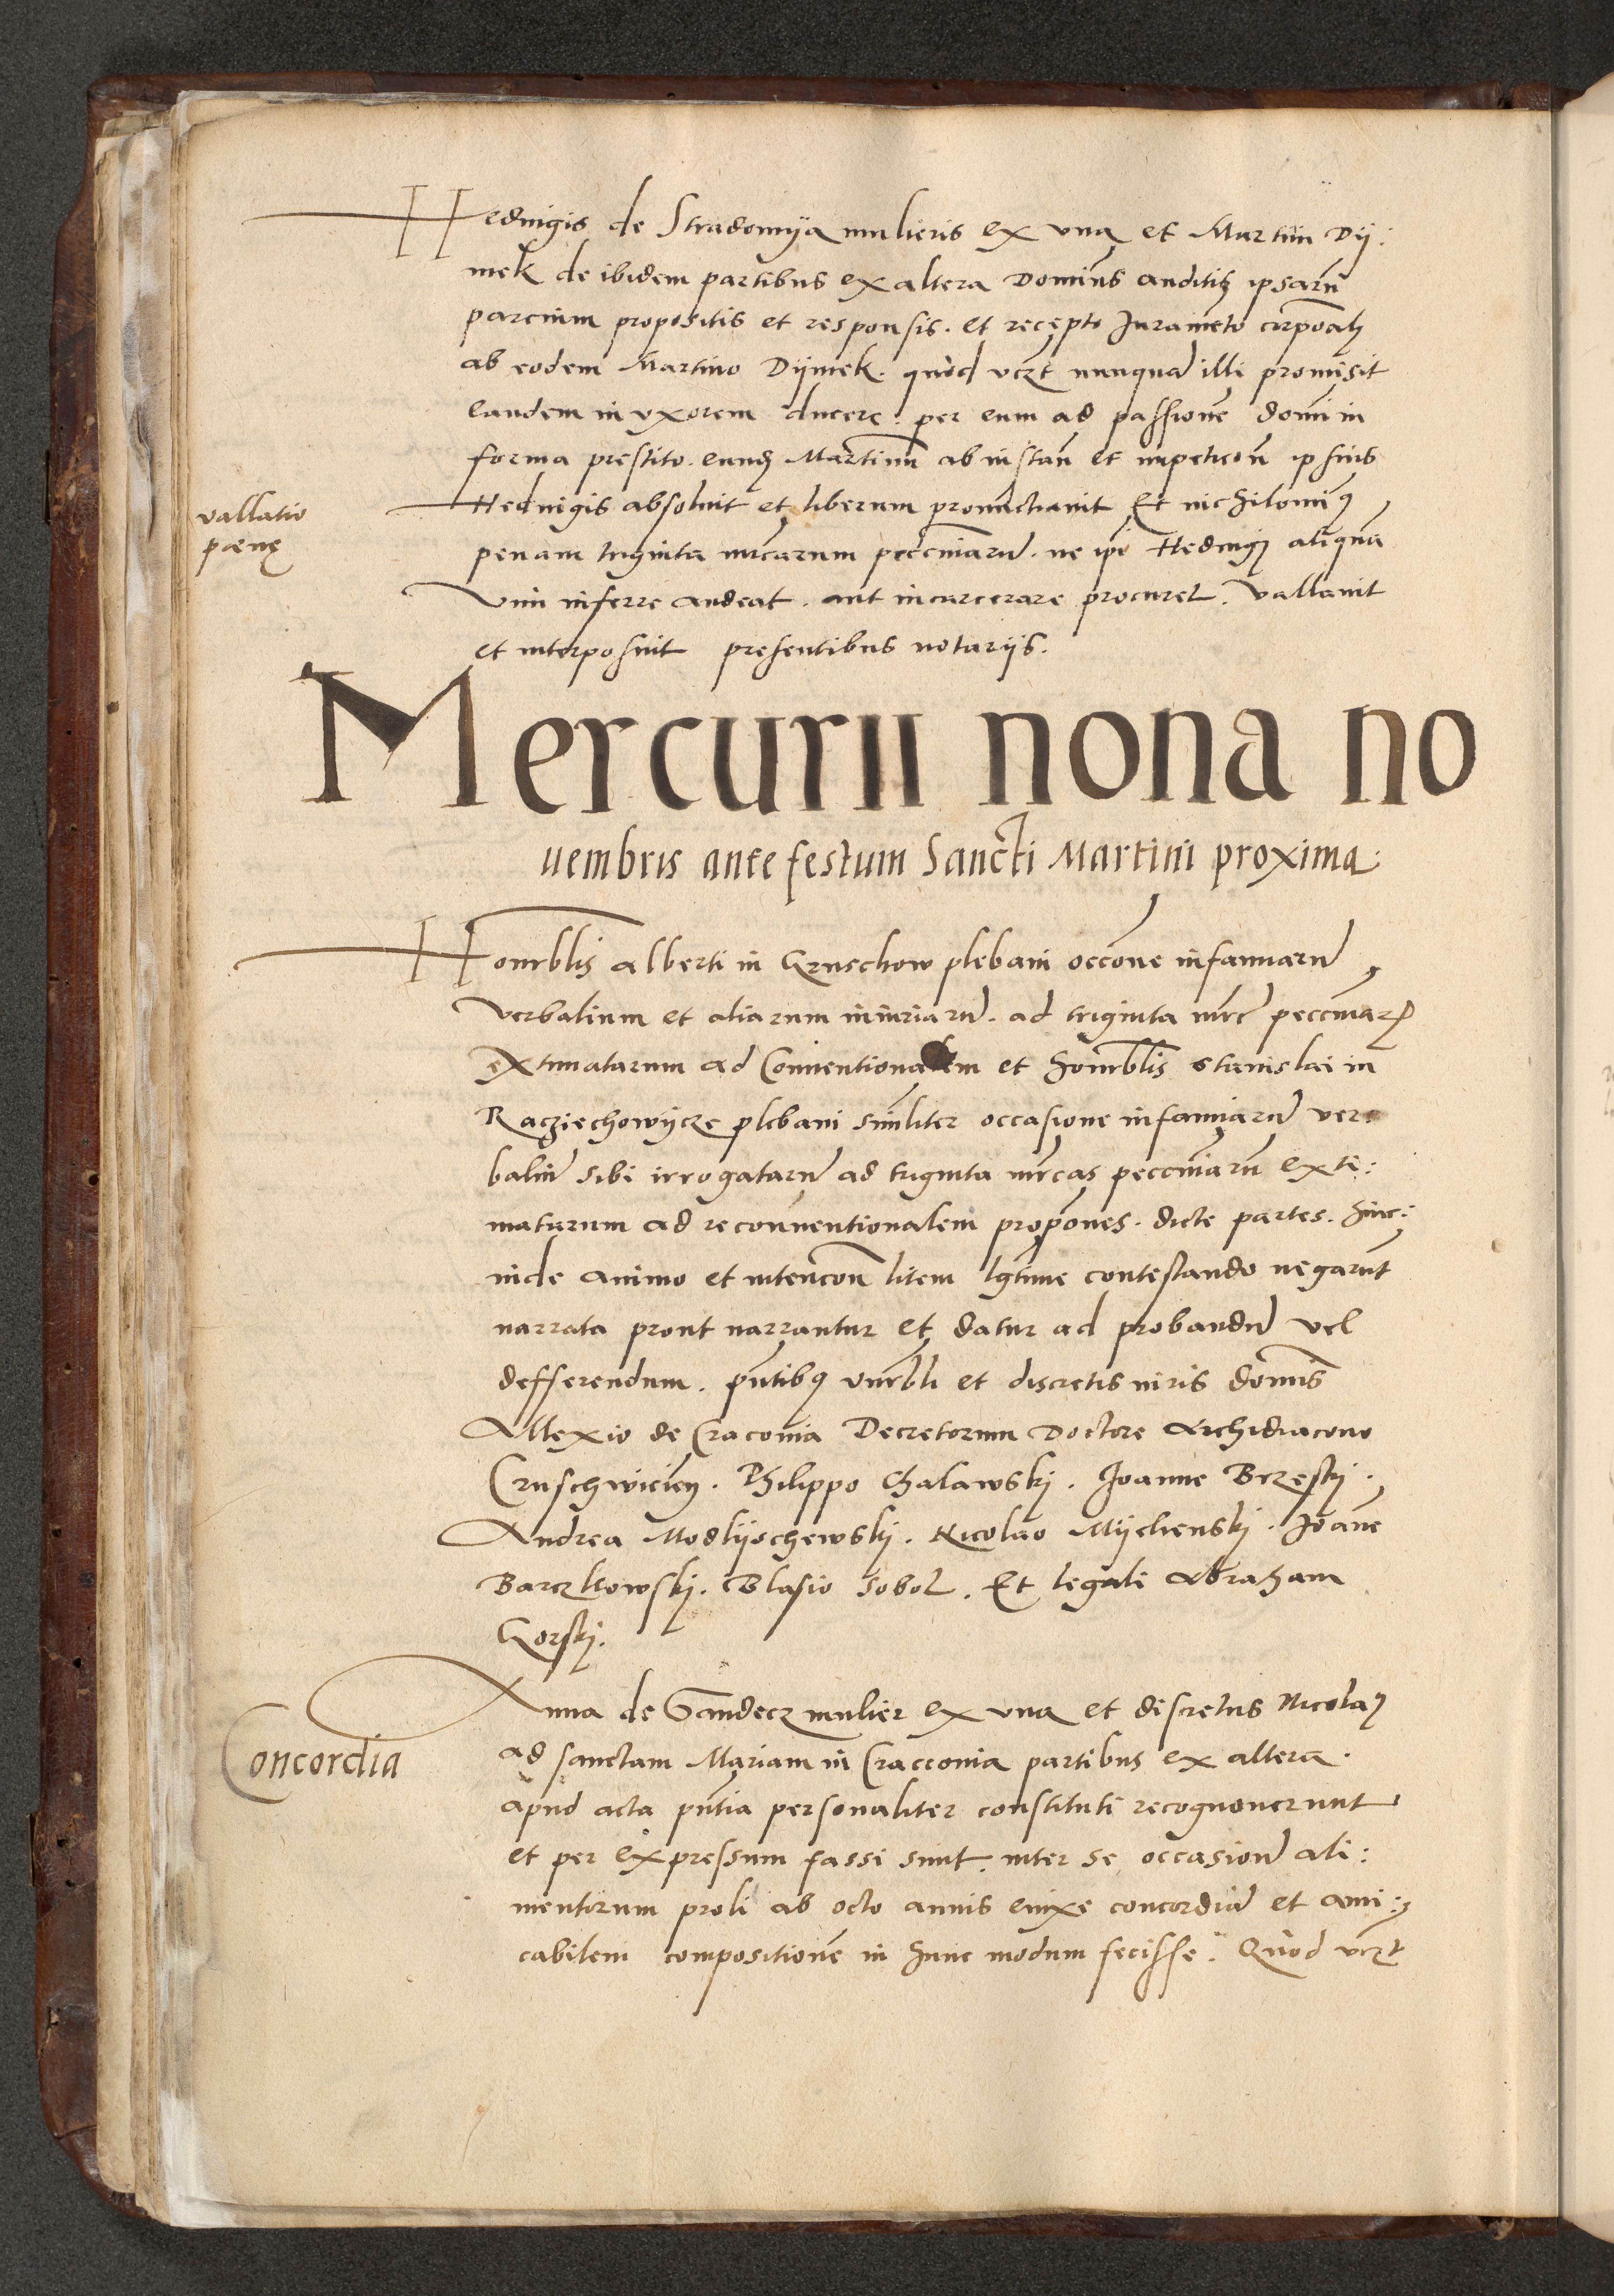 Hedvigis de Stradomija mulieris ex una et Martini Dij:
mek de ibidem partibus ex altera Dominus auditis ipsarũ
parcium propositis et responsis. et recepto Jurameto corpoali
ab eodem Martino Dijmek. quod vczt nunquã illi promisit
eandem in vxorem ducere. per eum ad passionẽ domi in
forma prestito. eundẽ Martinũ ab instan et impeticon ipsius
vallatio
pœnę
Hedvigis absoluit et liberum pronũctiauit Et nichilomiꝰ
penam triginta mrcarum peccuniarũ. ne ipi Hedvigi aliquã
vim inferre audeat. aut incarcerare procuret. vallauit
et interposuit presentibus notariis.
Mercurii nona no
uembris ante festum Sancti Martini proxima
Honorblis Alberti in Gruschow plebani occone infamiarũ
verbalium et aliarum iniuriarũ. ad triginta mrc peccuniarꝝ
extimatarum ad Conuentionalem et honorblis Stanislai in
Racziechowijcze plebani similiter occasione infamiarũ ver
baliũ sibi irrogatarũ ad triginta mrcas peccuniarũ exti:
matarum ad reconuentionalem propones. dicte partes. hinc
inde animo et intencon litem lgtime contestando negarũt
narrata prout narrantur et datur ad probandũ vel
defferendum. pñtibꝰ vnrbli et discretis viris domis
Allexio de Cracouia Decretorum Doctore Archidiacono
Cruschwicien. Philippo Chalawskj. Joanne Brzeskj.
Andrea Modlijschewskj. Nicolao Mijchenskj. Joãne
Barczkowskj. Blasio Sobol. Et legali Abraham
Gorskj.
Anna de Gandecz mulier ex vna et discretus Nicolaꝰ
Concordia
ad sanctam Mariam in Cracconia partibus ex altera.
apud acta pñtia personaliter constituti recognouerunt
et per expressum fassi sunt. inter se occasionẽ ali:
mentorum proli ab octo annis enixe concordiã et ami:
cabilem compositionẽ in hunc modum fecisse. Quod vczt